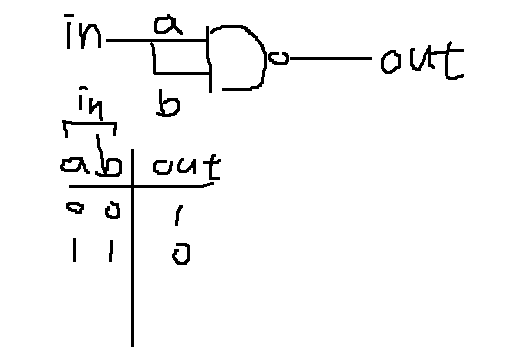 in a out
b
in
a b out
0 0 1
1 1 0